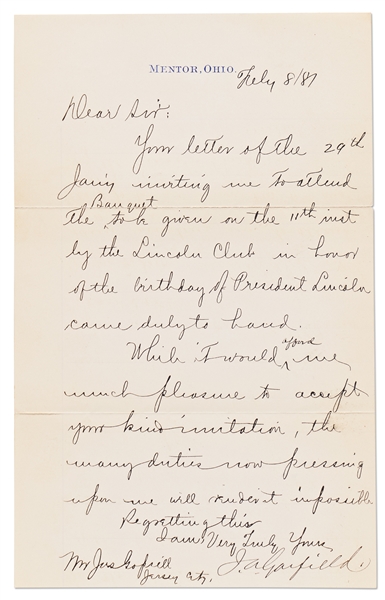 MENTOR, OHIO.
Feby 8/81
Dear Sir:
Your letter of the 29th
Jan'y inviting me to attend
the Banquet to be given on the 11th inst
by the Lincoln Club in honor
of the birthday of President Lincoln
came duly to hand.
While it would afford me
much pleasure to accept
your kind invitation, the
many duties now pressing
upon me will render it impossible
Regretting this
I am Very Truly Yours,
J. A. Garfield.
Mr Jas
Jersey City.